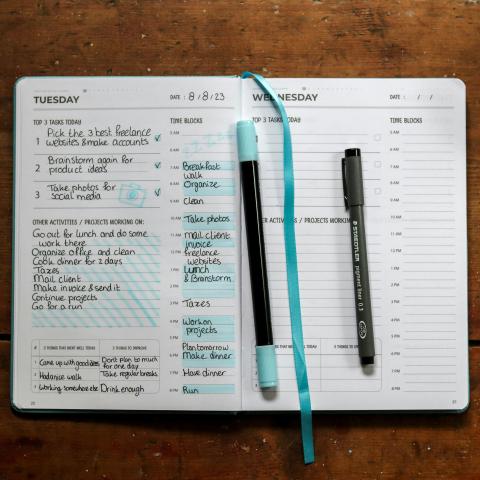 TUESDAY
DATE : 8/8/23
TOP 3 TASKS TODAY
1 Pick the 3 best freelance
websites & make accounts
2 Brainstorm again for
product ideas
3 Take photos for
social media
OTHER ACTIVITIES / PROJECTS WORKING ON:
Go out for lunch and do some
work there
Organize office and clean
Cook dinner for 2 days
Taxes
Mail client
Make invoice & send it
Continue projects
Go for a run
3 THINGS THAT WENT WELL TODAY
3 THINGS TO IMPROVE
Came up with good ideas
Don't plan to much
for one day
Had a nice walk
Take regular breaks
Working somewhere else
Drink enough
TIME BLOCKS
5 AM
6 AM
zzzz
7 AM Breakfast
walk
8 AM Organize
9 AM Clean
10 AM Take photos
11 AM Mail client
invoice
12 PM Freelance
websites
1 PM Lunch
& Brainstorm
2 PM
3 PM Taxes
4 PM Work on
projects
5 PM
6 PM Plan tomorrow
Make dinner
7 PM Have dinner
8 PM Run
WEDNESDAY
DATE : / /
TOP 3 TASKS TODAY
OTHER ACTIVITIES / PROJECTS WORKING
THAT WENT WELL TODAY
3 THINGS TO
TIME BLOCKS
5 AM
6 AM
7 AM
8 AM
9 AM
10 AM
11 AM
12 PM
1 PM
2 PM
3 PM
4 PM
5 PM
6 PM
7 PM
8 PM
STAEDTLER
pigment liner 0.3